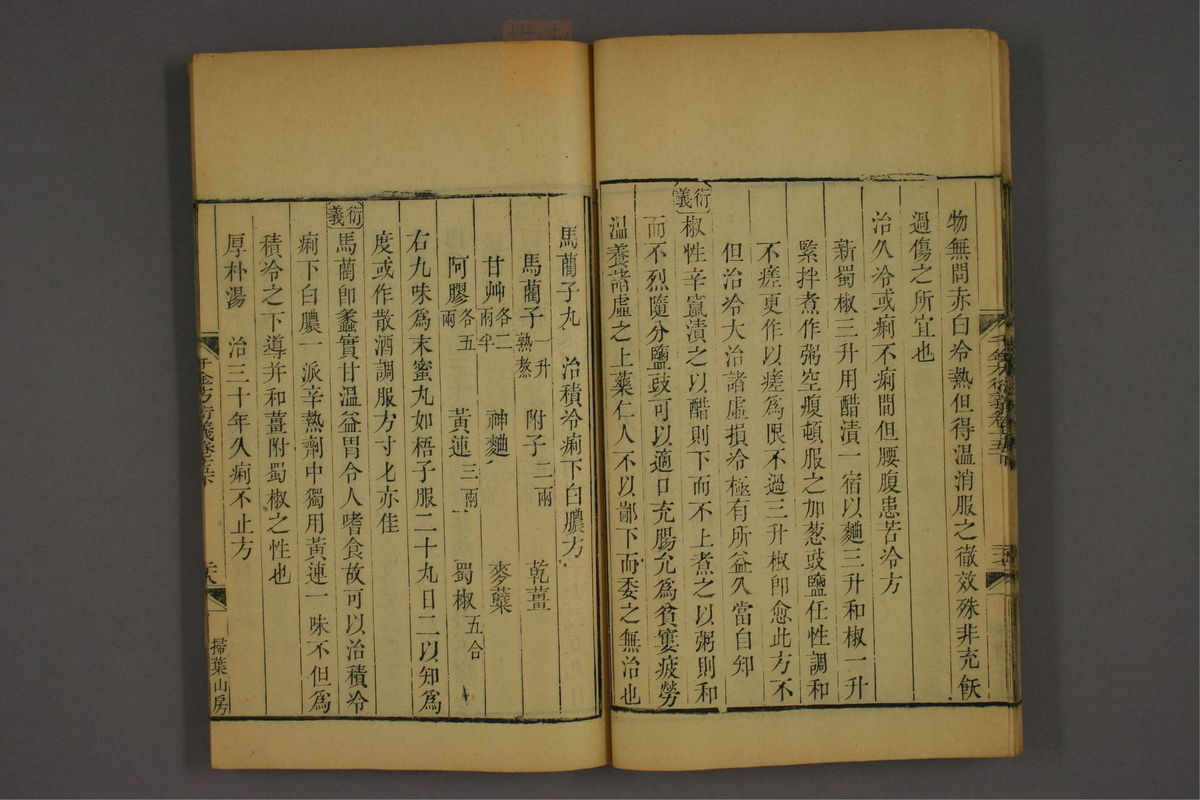 物無問赤白冷熱但得溫消服之徹效殊非充飫
過傷之所宜也
治久冷或痢不痢間但腰腹患苦冷方
新蜀椒三升用醋漬一宿以麯三升和椒一升
緊拌煮作粥空腹頓服之加葱豉鹽任性調和
不瘥更作以瘥為限不過三升椒即愈此方不
但治冷大治諸虛損冷極有所益久當自知
衍義
椒性辛竄漬之以醋則下而不上煮之以粥則和
而不烈隨分鹽豉可以適口充腸允為貧窶疲勞
溫養諸虛之上藥仁人不以鄙下而委之無治也
馬藺子丸 治積冷痢下白膿方
馬藺子一升熟熬 附子二兩 乾薑
甘艸各二兩半 神麯 麥蘗
阿膠各五兩 黃連三兩 蜀椒五合
右九味為末蜜丸如梧子服二十丸日二以知為
度或作散酒調服方寸匕亦佳
衍義
馬藺即蠡實甘溫益胃令人嗜食故可以治積冷
痢下白膿一派辛熱劑中獨用黃連一味不但為
積冷之下導并和薑附蜀椒之性也
厚朴湯 治三十年久痢不止方
千金方衍義卷十五下
掃葉山房